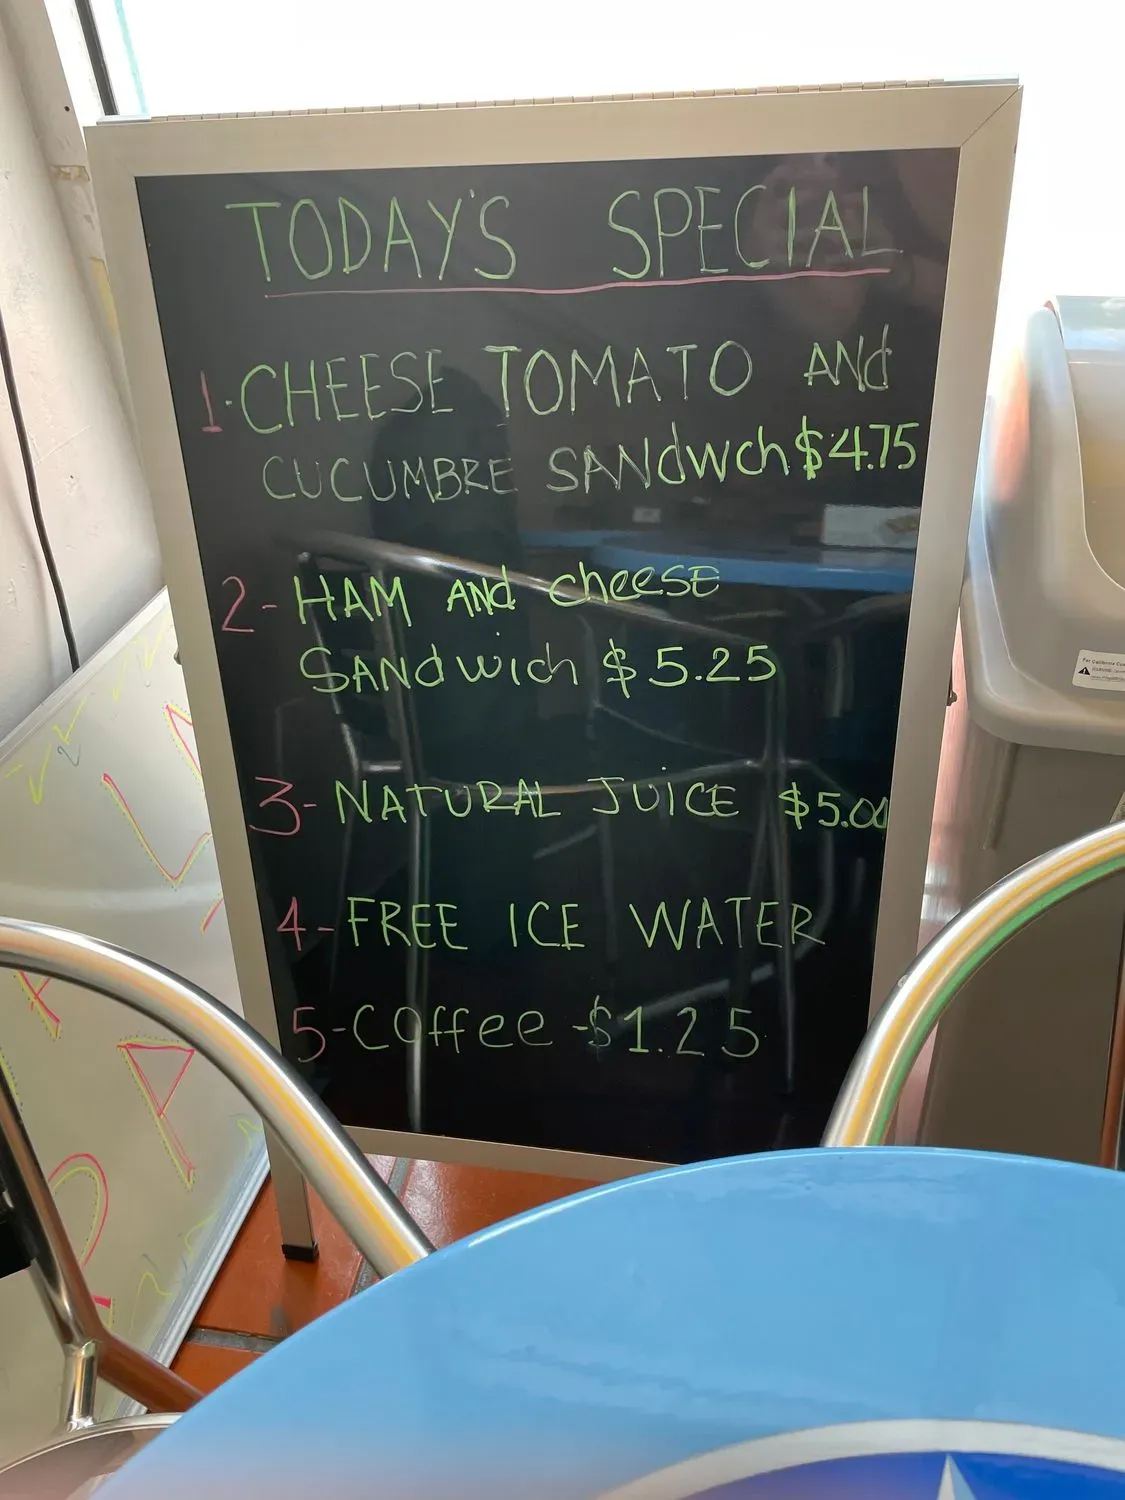 TODAY'S SPECIAL
1-CHEESE TOMATO ANd
CUCUMBRE SANdwch $4.75
2- HAM ANd cheese
SANdwich $5.25
3- NATURAL JUICE $5.00
4-FREE ICE WATER
5-Coffee -$1.25
For California
WARNING: